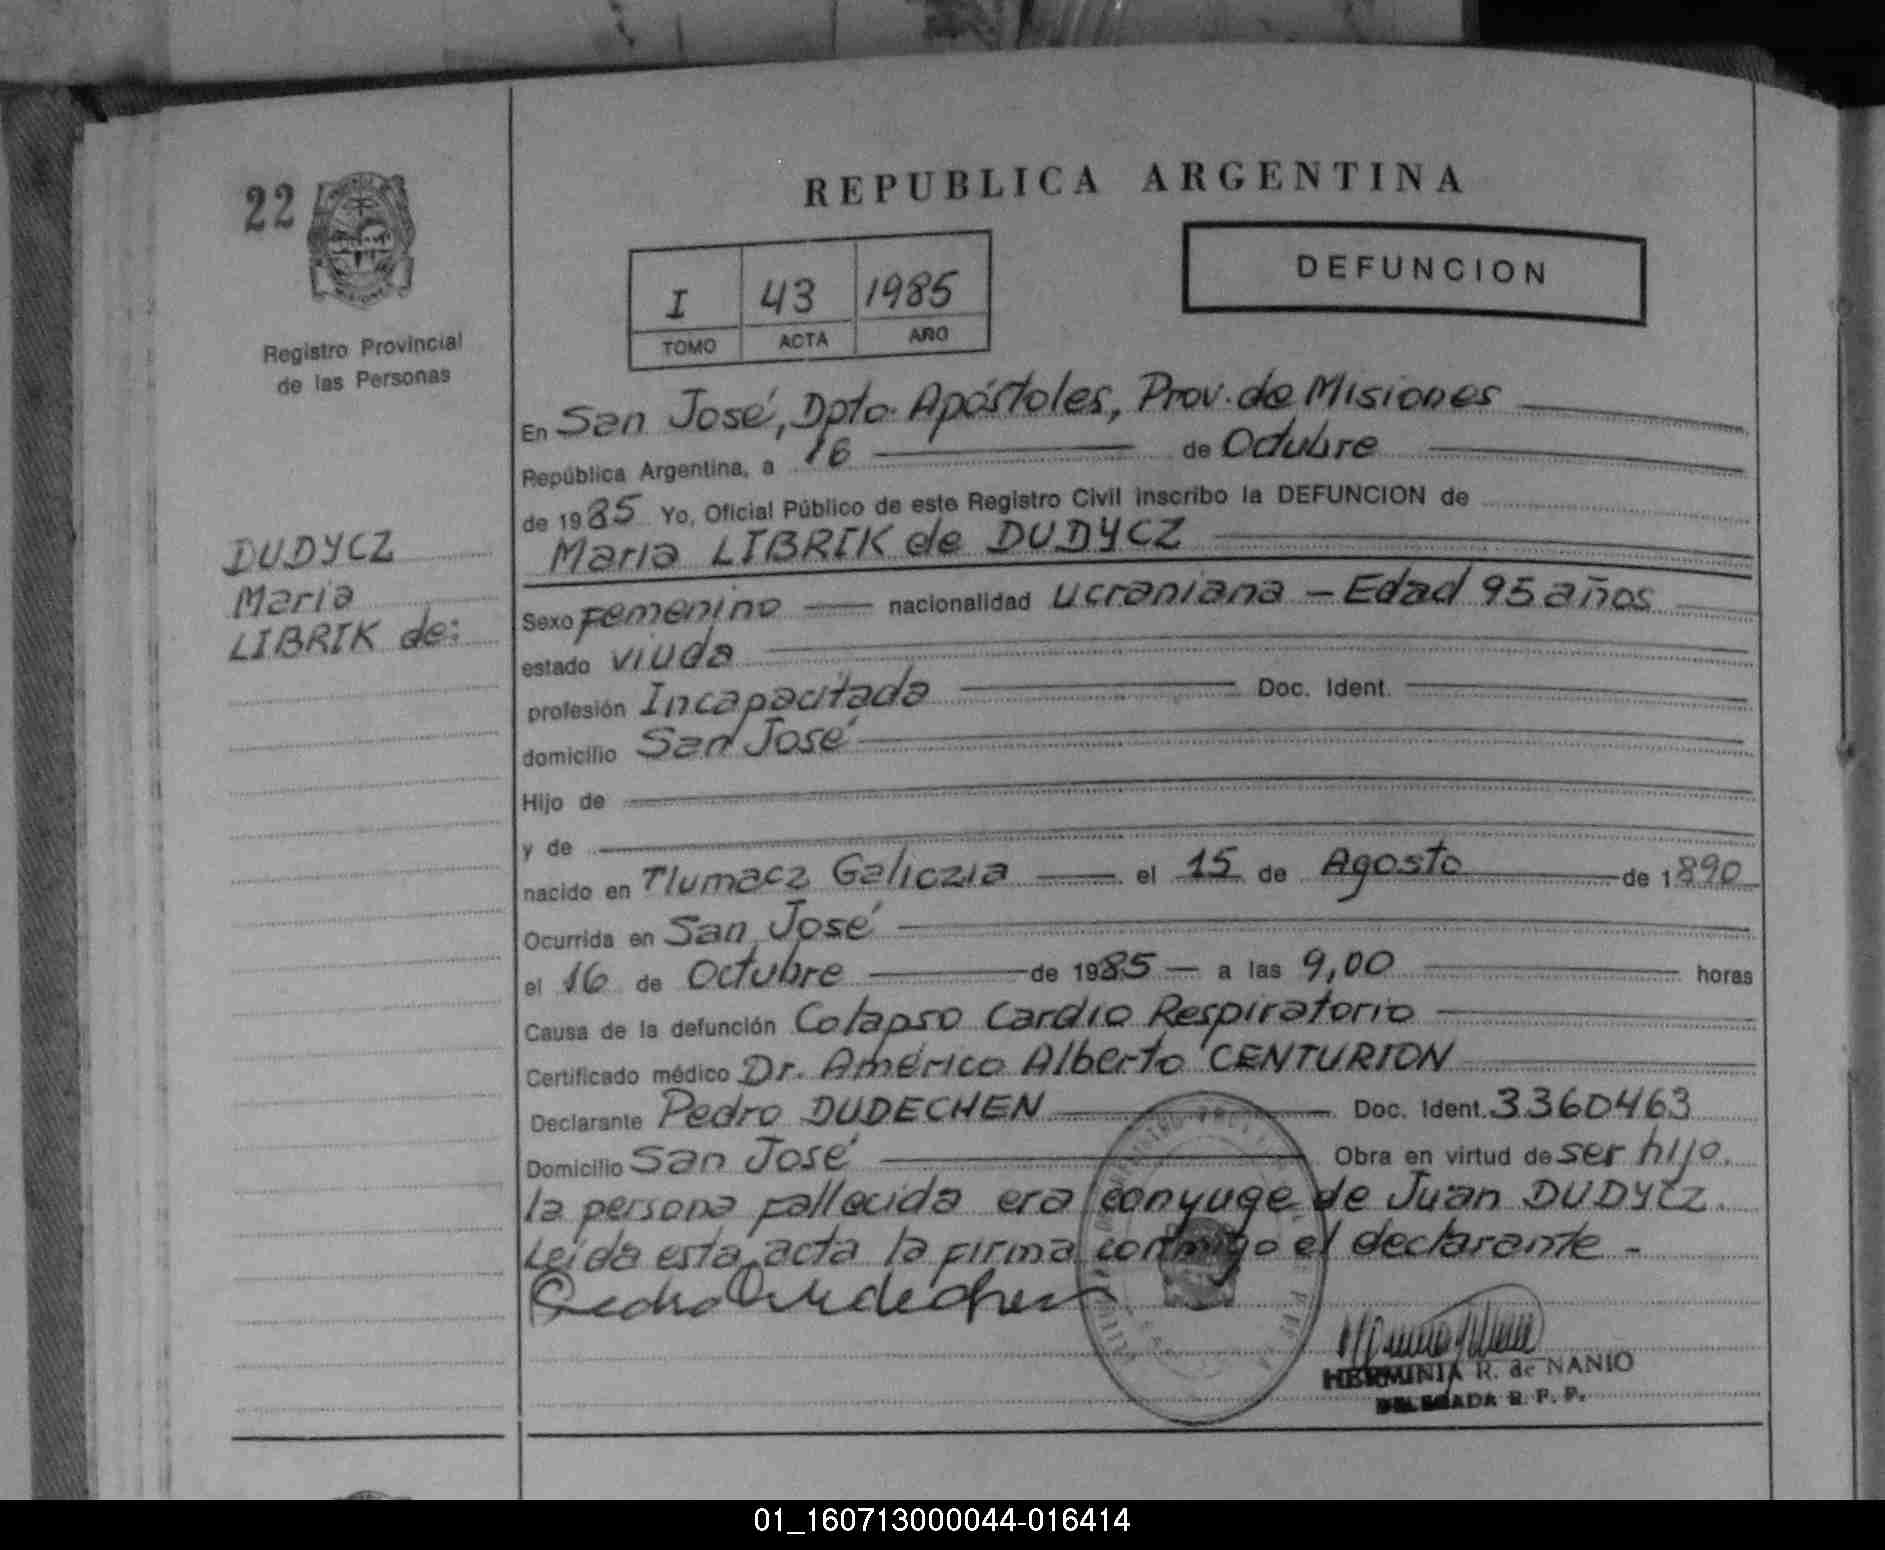 22
Registro Provincial
de las Personas
DUDYCZ
Maria
LIBRIK de:
REPUBLICA ARGENTINA
I 43 1985
TOMO ACTA AÑO
DEFUNCION
En San José, Dpto. Apóstoles, Prov. de Misiones
República Argentina, a 16 de Octubre
de 1985 Yo, Oficial Público de este Registro Civil inscribo la DEFUNCION de
Maria LIBRIK de DUDYCZ
Sexo Femenino nacionalidad ucraniana - Edad 95 años
estado viuda
profesión Incapacitada Doc. Ident.
domicilio San José
Hijo de
y de
nacido en Tlumacz Galiczia el 15 de Agosto de 1890
Ocurrida en San José
el 16 de Octubre de 1985 a las 9,00 horas
Causa de la defunción Colapso Cardio Respiratorio
Certificado médico Dr. Américo Alberto CENTURION
Declarante Pedro DUDECHEN Doc. Ident. 3360463
Domicilio San José Obra en virtud de ser hijo.
la persona fallecida era conyuge de Juan DUDYCZ.
Leída esta acta la firma conmigo el declarante -
Pedro Dudechen
HERMINIA R. de NANIO
DELEGADA R. P. P.
01_160713000044-016414